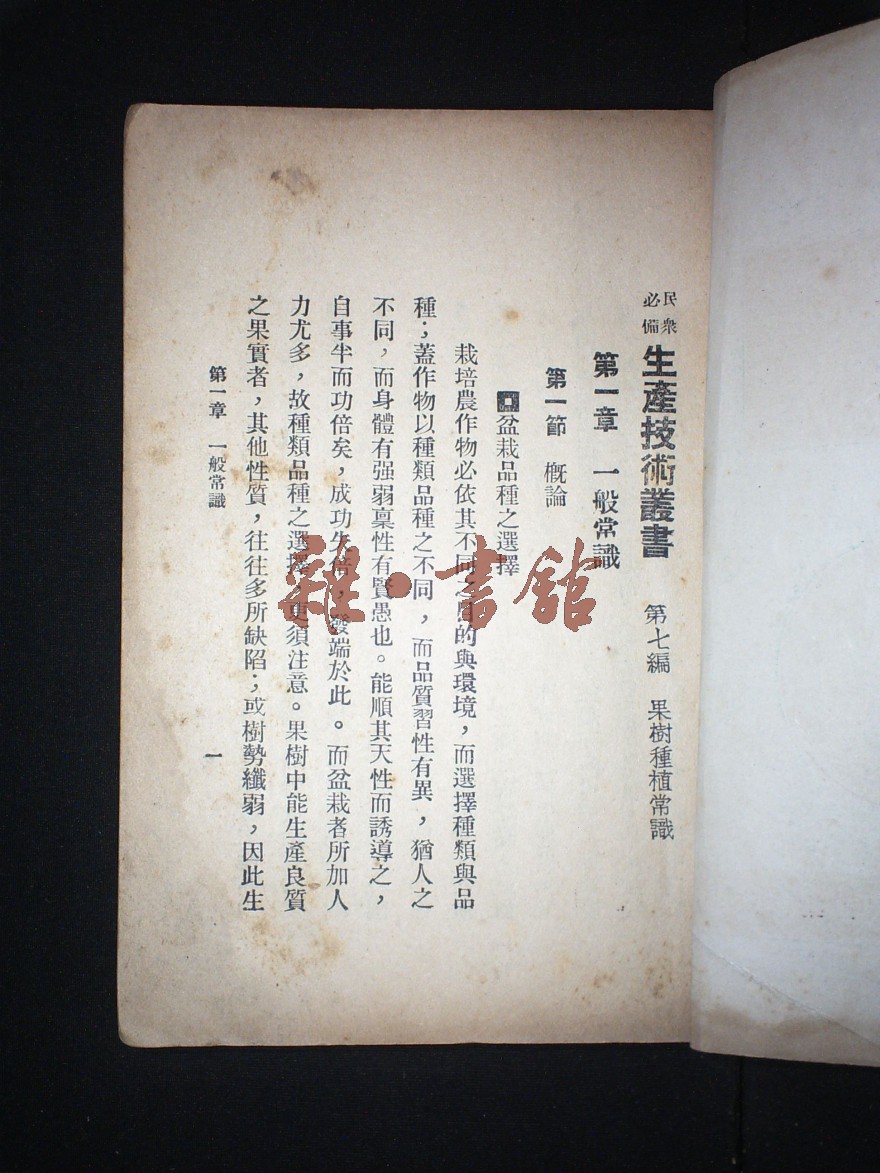 民眾必備 生產技術叢書 第七編 果樹種植常識
第一章 一般常識
第一節 概論
盆栽品種之選擇
栽培農作物必依其不同之目的與環境，而選擇種類與品
種；蓋作物以種類品種之不同，而品質習性有異，猶人之
不同，而身體有强弱稟性有賢愚也。能順其天性而誘導之，
自事半而功倍矣，成功失信，發端於此。而盆栽者所加人
力尤多，故種類品種之選擇，更須注意。果樹中能生產良質
之果實者，其他性質，往往多所缺陷；或樹勢纖弱，因此生
第一章 一般常識
一
雜·書館